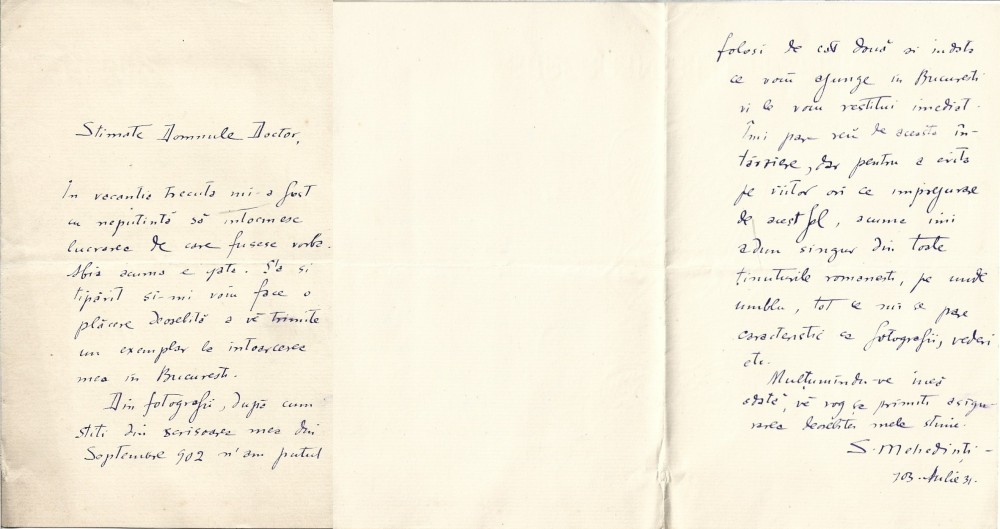 Stimate Domnule Doctor,
In vacantia trecuta mi-a fost
cu neputintă să intocmesc
lucrarea de care fusese vorba.
Abia acuma e gata. S'a si
tipărit si-mi voiu face o
plăcere deosebită a vĕ trimite
un exemplar la intoarcerea
mea in Bucuresti.
Din fotografii, după cum
stiti din scrisoarea mea din
Septembre 902 n'am putut
folosi de cât două si indata
ce voiu ajunge in Bucuresti
vi le voiu restitui imediat.
Îmi pare rĕu de aceasta în-
târziere, dar pentru a evita
pe viitor ori ce imprejurare
de acest fel, acuma imi
adun singur din toate
tinuturile romanesti, pe unde
umblu, tot ce mi se pare
caracteristic ca fotografii, vederi
etc.
Mulțumindu-ve încă
odată, vĕ rog sa primiti asigu-
rarea deosebitei mele stime.
S. Mehedinți -
903. Iulie 31.